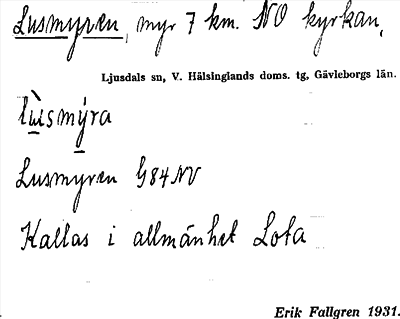 Lusmyren, myr 7 km. NO kyrkan,
Ljusdals sn, V. Hälsinglands doms. tg, Gävleborgs län.
lùsmýra
Lusmyren G84NV
Kallas i allmänhet Lota
Erik Fallgren 1931.